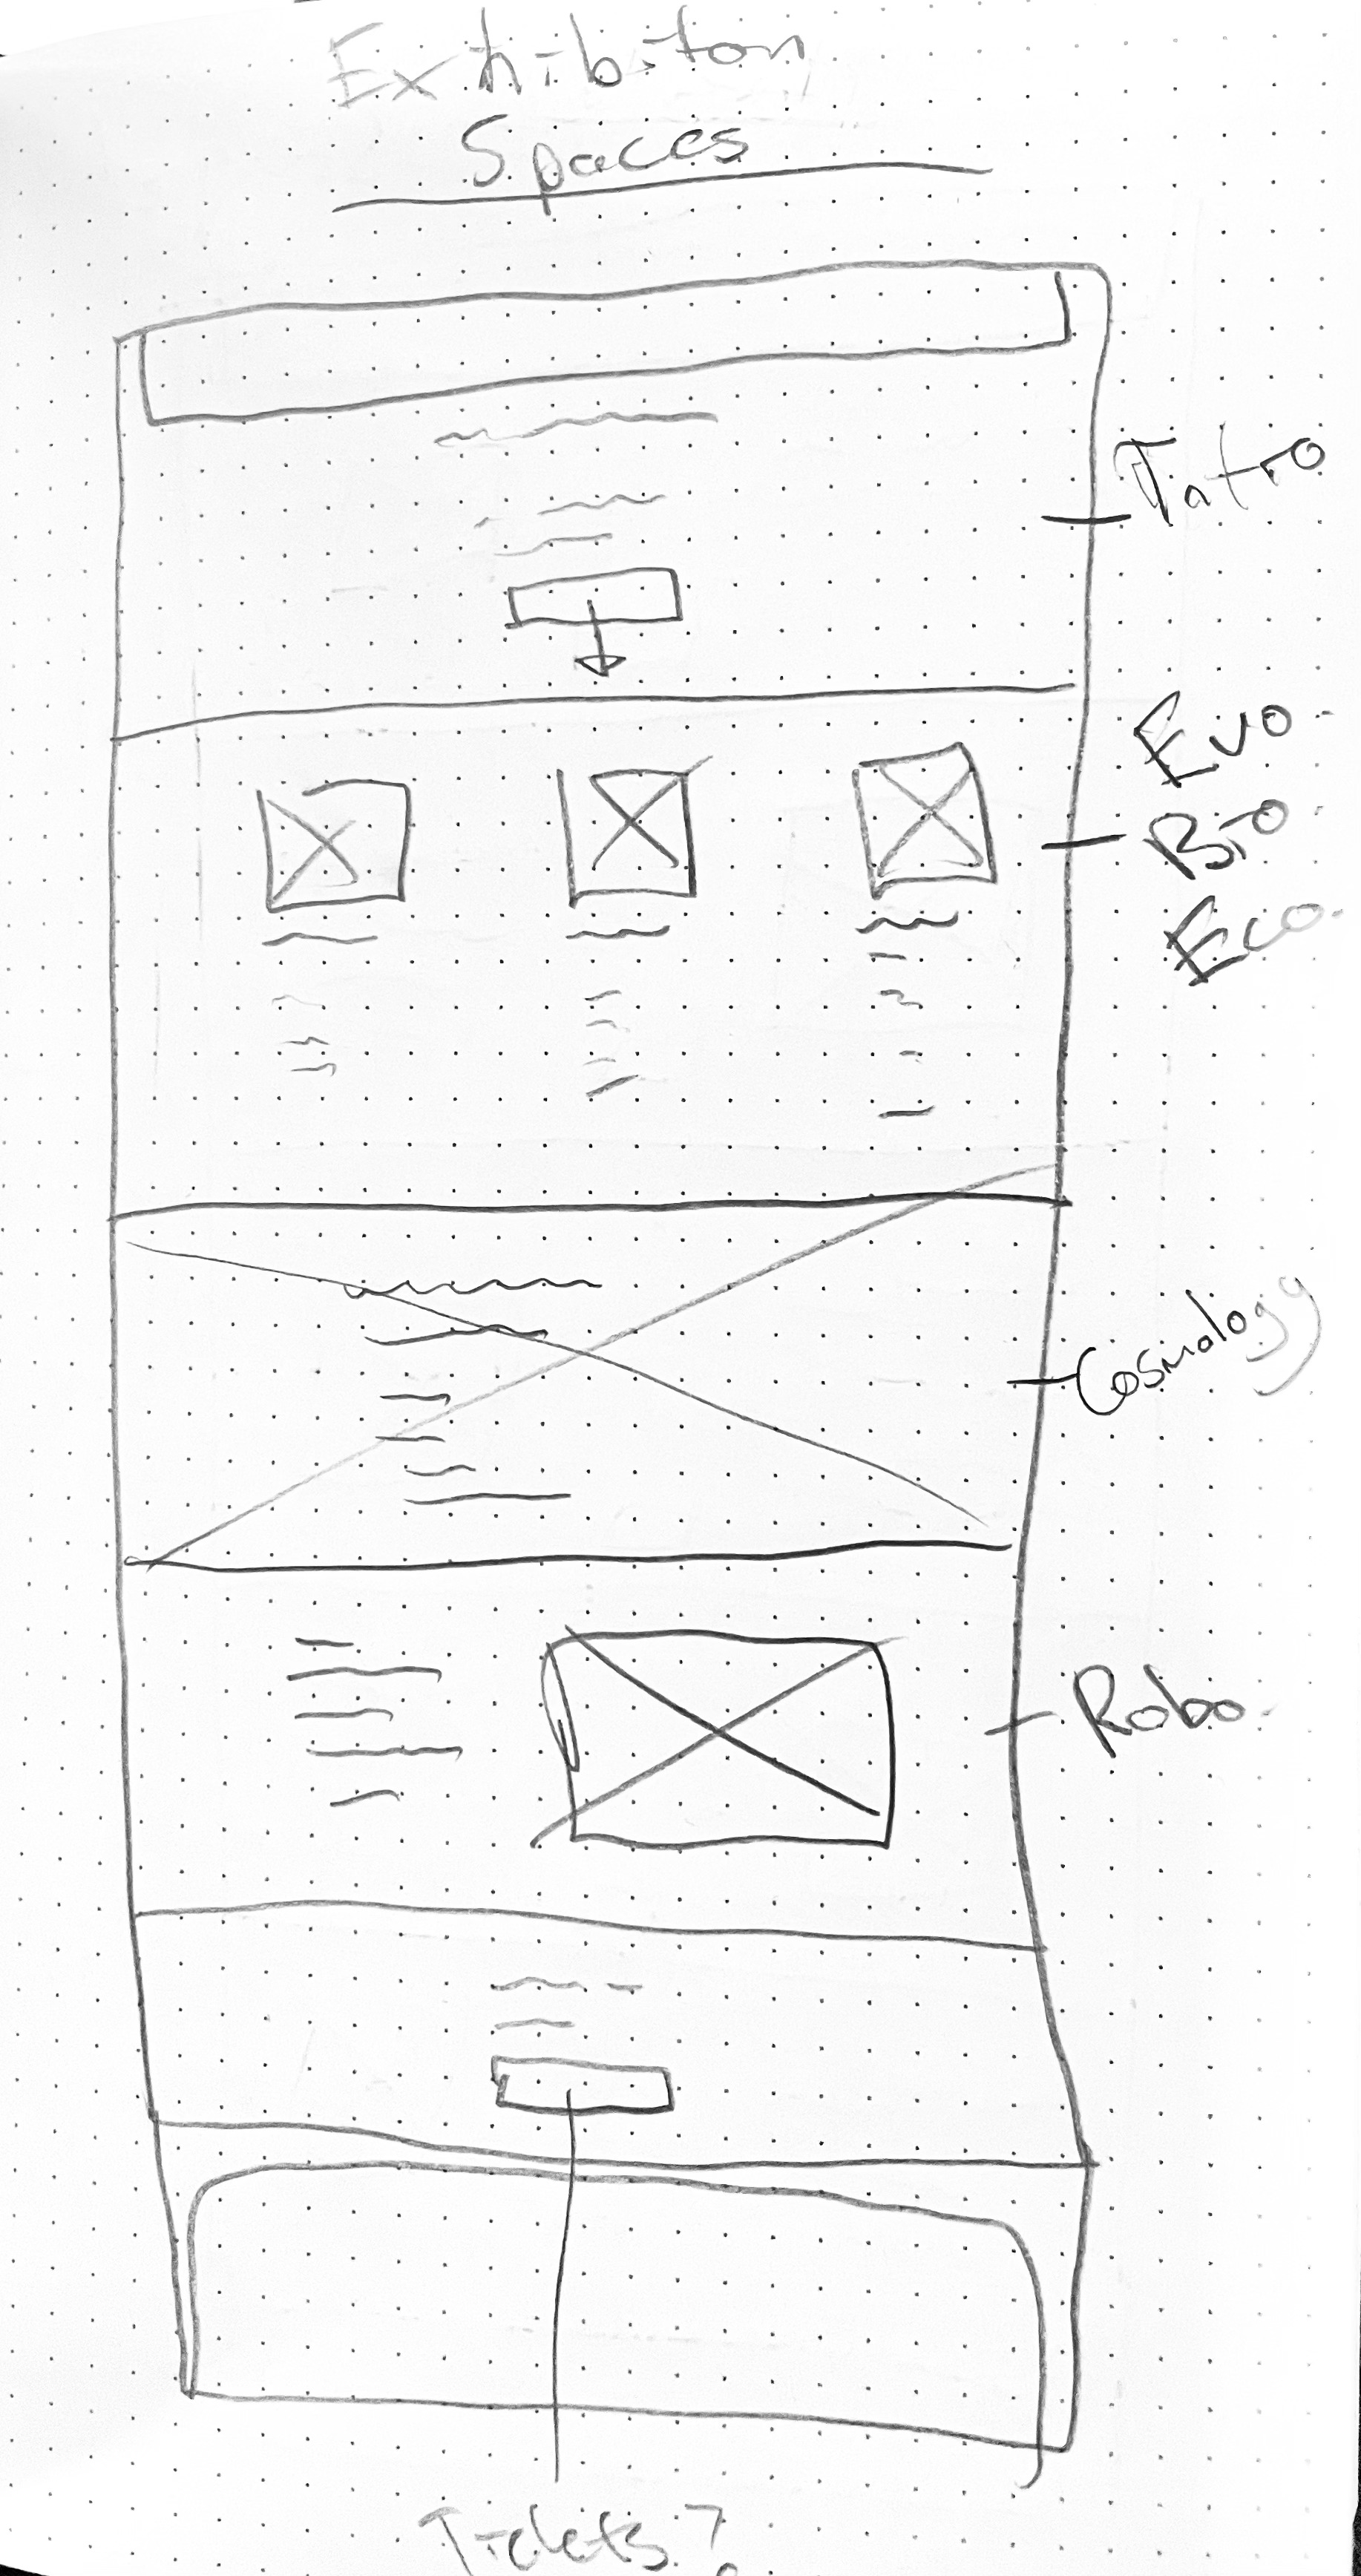 Exhibiton
Spaces
Intro
Evo
Bio
Eco.
Cosmology
Robo.
Tickets?